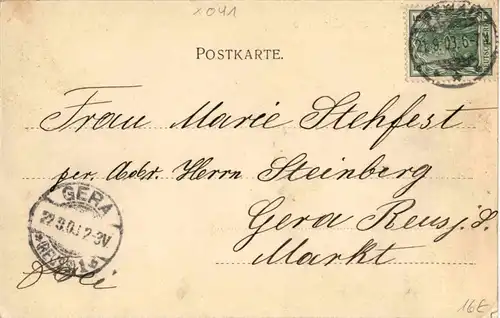 x041
POSTKARTE.
22.9.03.6-7
Frau Marie Stehfest
per. Adr. Herrn Steinberg
Gera Reuss j. L.
Markt
GERA
22.9.03.2-3V
(REUSS)
16E